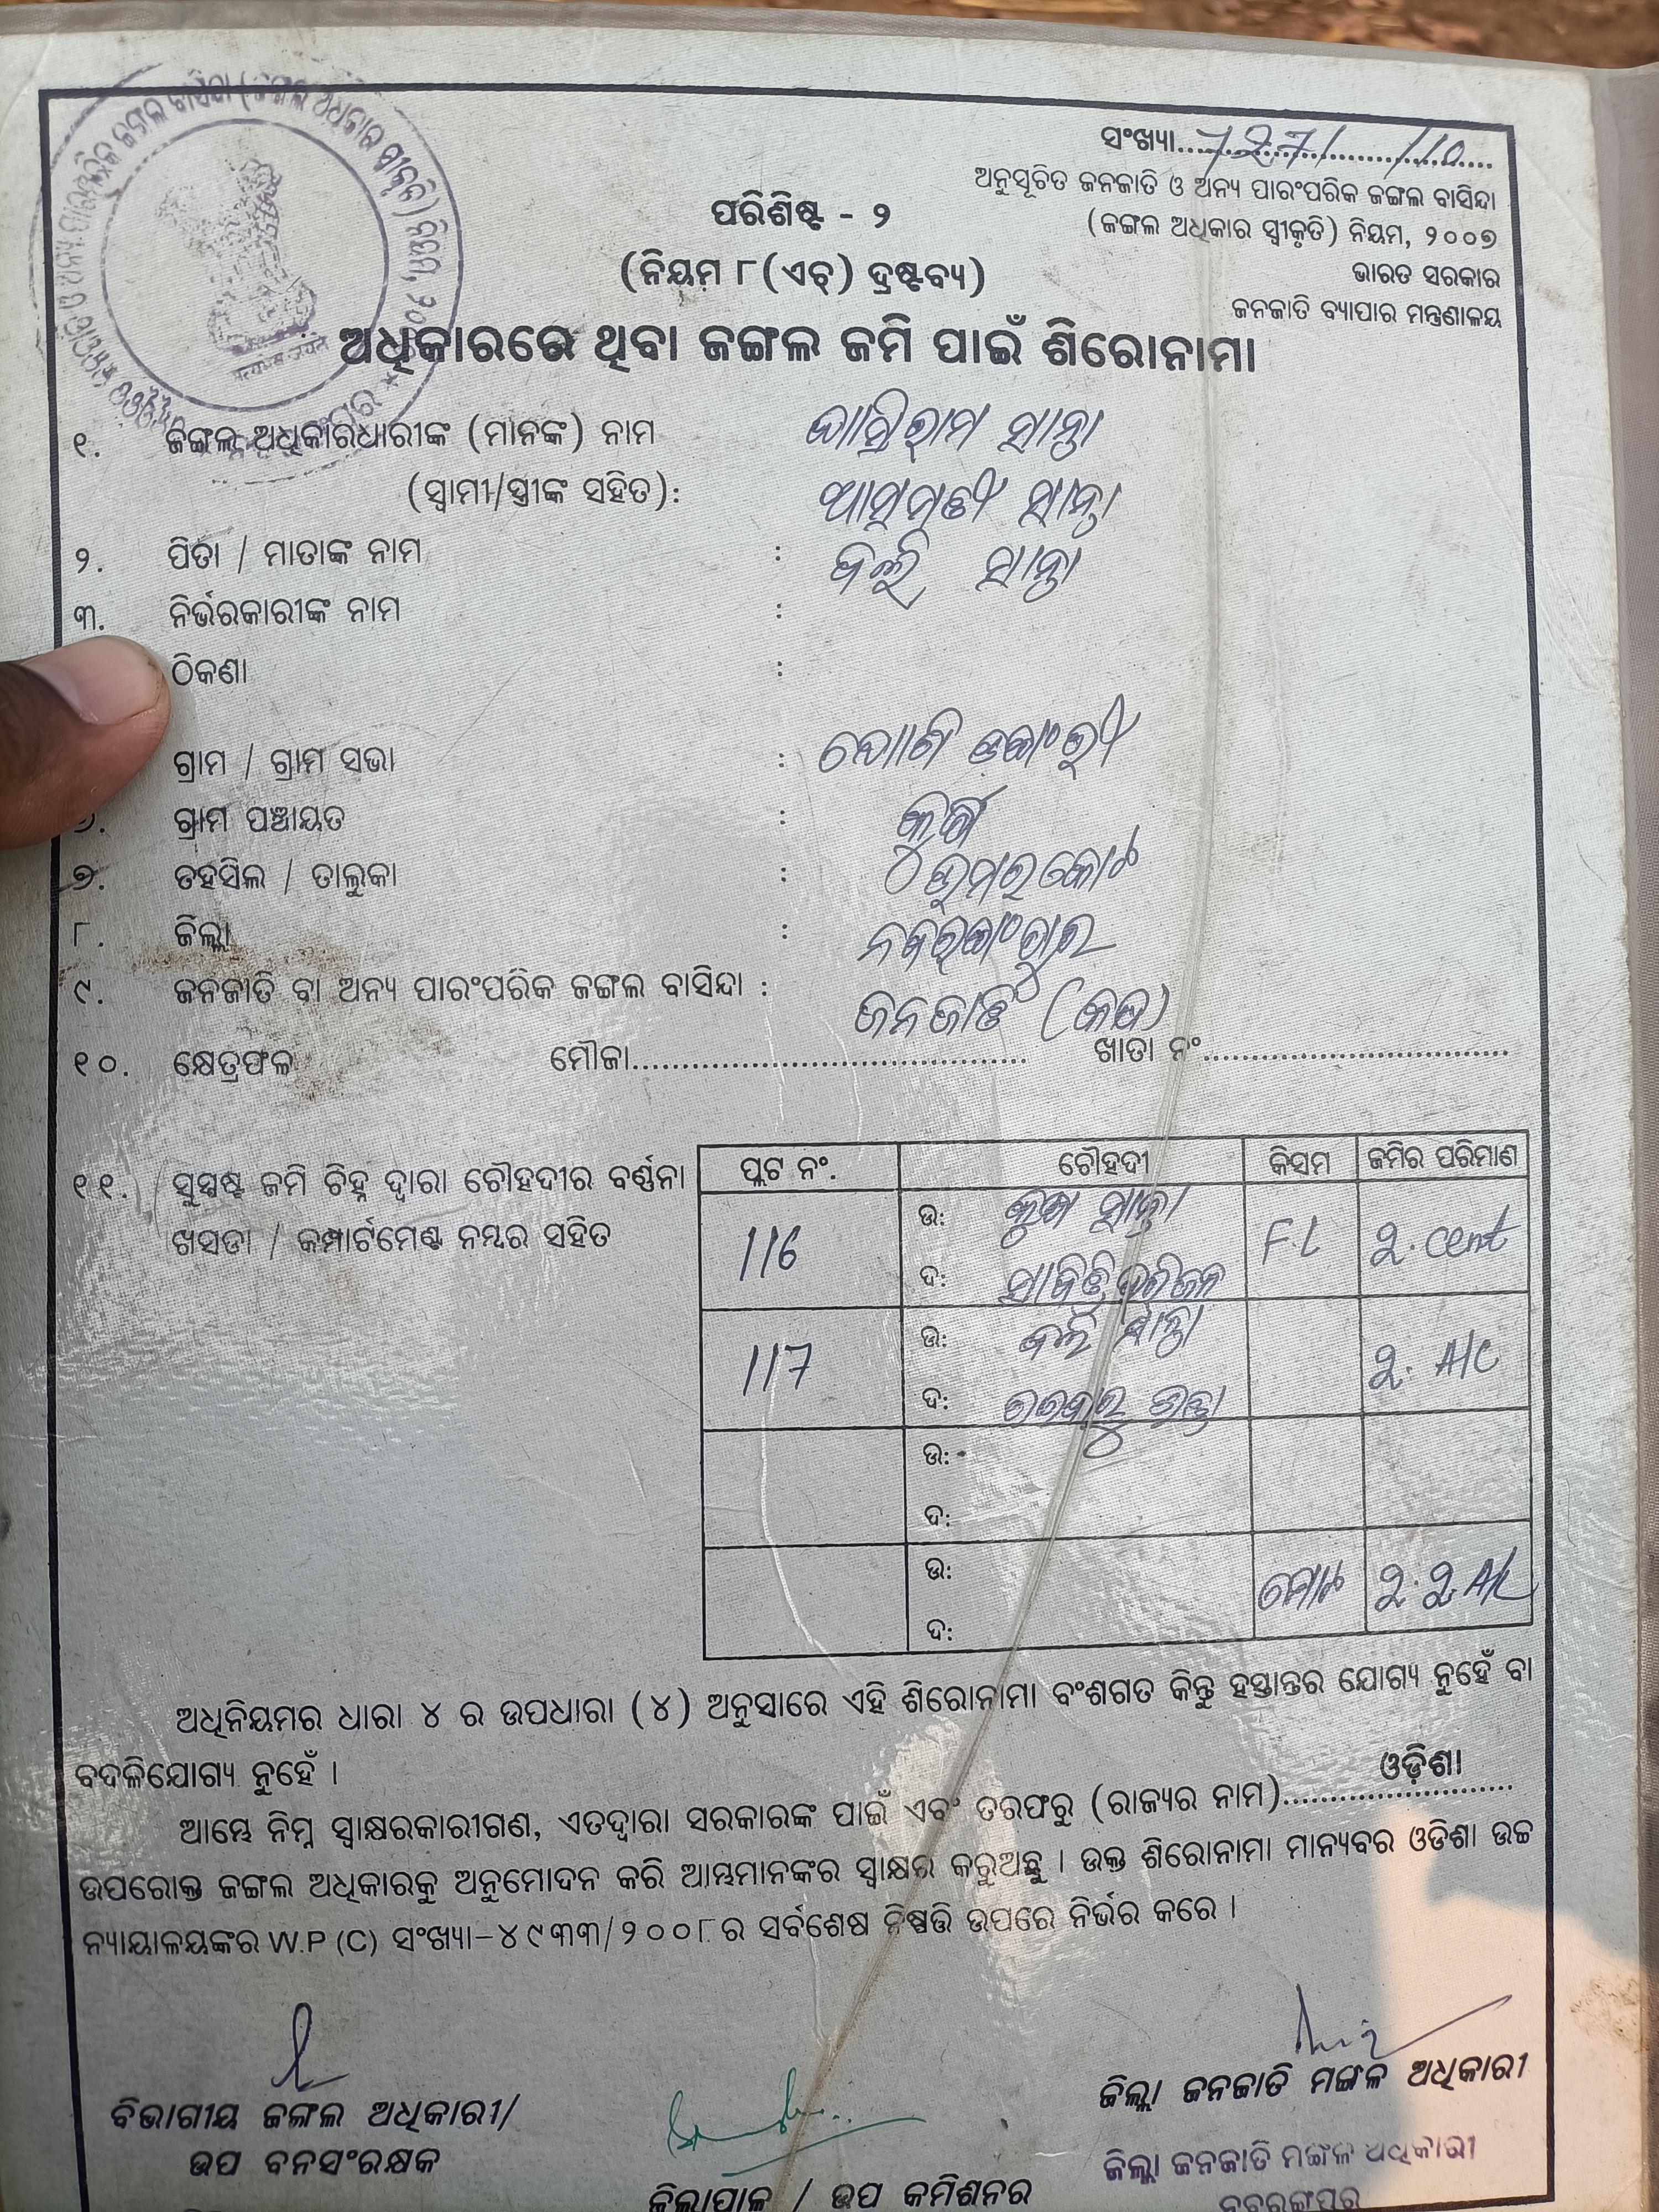 ସଂଖ୍ୟା....727/ /10
ଅନୁସୂଚିତ ଜନଜାତି ଓ ଅନ୍ୟ ପାରଂପରିକ ଜଙ୍ଗଲ ବାସିନ୍ଦା
(ଜଙ୍ଗଲ ଅଧିକାର ସ୍ୱୀକୃତି) ନିୟମ, ୨୦୦୭
ଭାରତ ସରକାର
ଜନଜାତି ବ୍ୟାପାର ମନ୍ତ୍ରଣାଳୟ
ପରିଶିଷ୍ଟ - ୨
(ନିୟମ ୮(ଏଚ୍) ଦ୍ରଷ୍ଟବ୍ୟ)
ଅଧିକାରରେ ଥିବା ଜଙ୍ଗଲ ଜମି ପାଇଁ ଶିରୋନାମା
୧. ଜଙ୍ଗଲ ଅଧିକାରଧାରୀଙ୍କ (ମାନଙ୍କ) ନାମ ସାନ୍ତା
(ସ୍ୱାମୀ/ସ୍ତ୍ରୀଙ୍କ ସହିତ): ସାନ୍ତା
୨. ପିତା / ମାତାଙ୍କ ନାମ : ସାନ୍ତା
୩. ନିର୍ଭରକାରୀଙ୍କ ନାମ :
ଠିକଣା :
ଗ୍ରାମ / ଗ୍ରାମ ସଭା :
ଗ୍ରାମ ପଞ୍ଚାୟତ :
୭. ତହସିଲ / ତାଲୁକା : ଉମରକୋଟ
୮. ଜିଲ୍ଲା : ନବରଙ୍ଗପୁର
୯. ଜନଜାତି ବା ଅନ୍ୟ ପାରଂପରିକ ଜଙ୍ଗଲ ବାସିନ୍ଦା : ଜନଜାତି
୧୦. କ୍ଷେତ୍ରଫଳ ମୌଜା........ ଖାତା ନଂ........
୧୧. ସୁସ୍ପଷ୍ଟ ଜମି ଚିହ୍ନ ଦ୍ୱାରା ଚୌହଦୀର ବର୍ଣ୍ଣନା
ଖସଡା / କମ୍ପାର୍ଟମେଣ୍ଟ ନମ୍ବର ସହିତ
ପ୍ଲଟ ନଂ. ଚୌହଦୀ କିସମ ଜମିର ପରିମାଣ
116 ଉ: ସାନ୍ତା F.L ୨. cent
ଦ: ହରିଜନ
117 ଉ: ସାନ୍ତା ୨. A/C
ଦ:
ଉ:
ଦ:
ଉ: ମୋଟ ୨.୨. A/C
ଦ:
ଅଧିନିୟମର ଧାରା ୪ ର ଉପଧାରା (୪) ଅନୁସାରେ ଏହି ଶିରୋନାମା ବଂଶଗତ କିନ୍ତୁ ହସ୍ତାନ୍ତର ଯୋଗ୍ୟ ନୁହେଁ ବା
ବଦଳିଯୋଗ୍ୟ ନୁହେଁ ।
ଆମ୍ଭେ ନିମ୍ନ ସ୍ୱାକ୍ଷରକାରୀଗଣ, ଏତଦ୍ୱାରା ସରକାରଙ୍କ ପାଇଁ ଏବଂ ତରଫରୁ (ରାଜ୍ୟର ନାମ)....ଓଡ଼ିଶା....
ଉପରୋକ୍ତ ଜଙ୍ଗଲ ଅଧିକାରକୁ ଅନୁମୋଦନ କରି ଆମ୍ଭମାନଙ୍କର ସ୍ୱାକ୍ଷର କରୁଅଛୁ । ଉକ୍ତ ଶିରୋନାମା ମାନ୍ୟବର ଓଡିଶା ଉଚ୍ଚ
ନ୍ୟାୟାଳୟଙ୍କର W.P (C) ସଂଖ୍ୟା-୪୯୩୩/୨୦୦୮ ର ସର୍ବଶେଷ ନିଷ୍ପତ୍ତି ଉପରେ ନିର୍ଭର କରେ ।
ବିଭାଗୀୟ ଜଙ୍ଗଲ ଅଧିକାରୀ/
ଉପ ବନସଂରକ୍ଷକ
ଜିଲାପାଳ / ଉପ କମିଶନର
ଜିଲ୍ଲା ଜନଜାତି ମଙ୍ଗଳ ଅଧିକାରୀ
ଜିଲ୍ଲା ଜନଜାତି ମଙ୍ଗଳ ଅଧିକାରୀ
ନବରଙ୍ଗପୁର